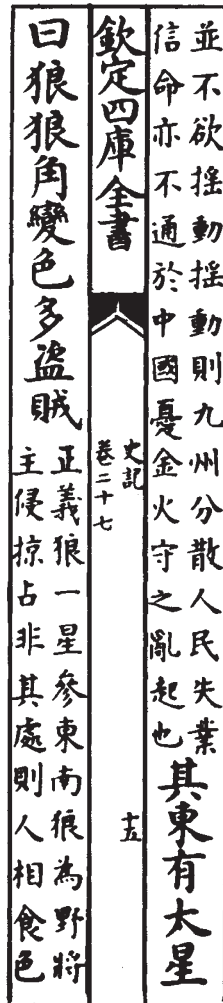 並不欲揺動揺動則九州分散人民失業
信命亦不通於中國憂金火守之亂起也
其東有太星
欽定四庫全書
史記
卷二十七
十五
曰狼狼角變色多盜賊
正義狼一星參東南狼為野將
主侵掠占非其處則人相食色